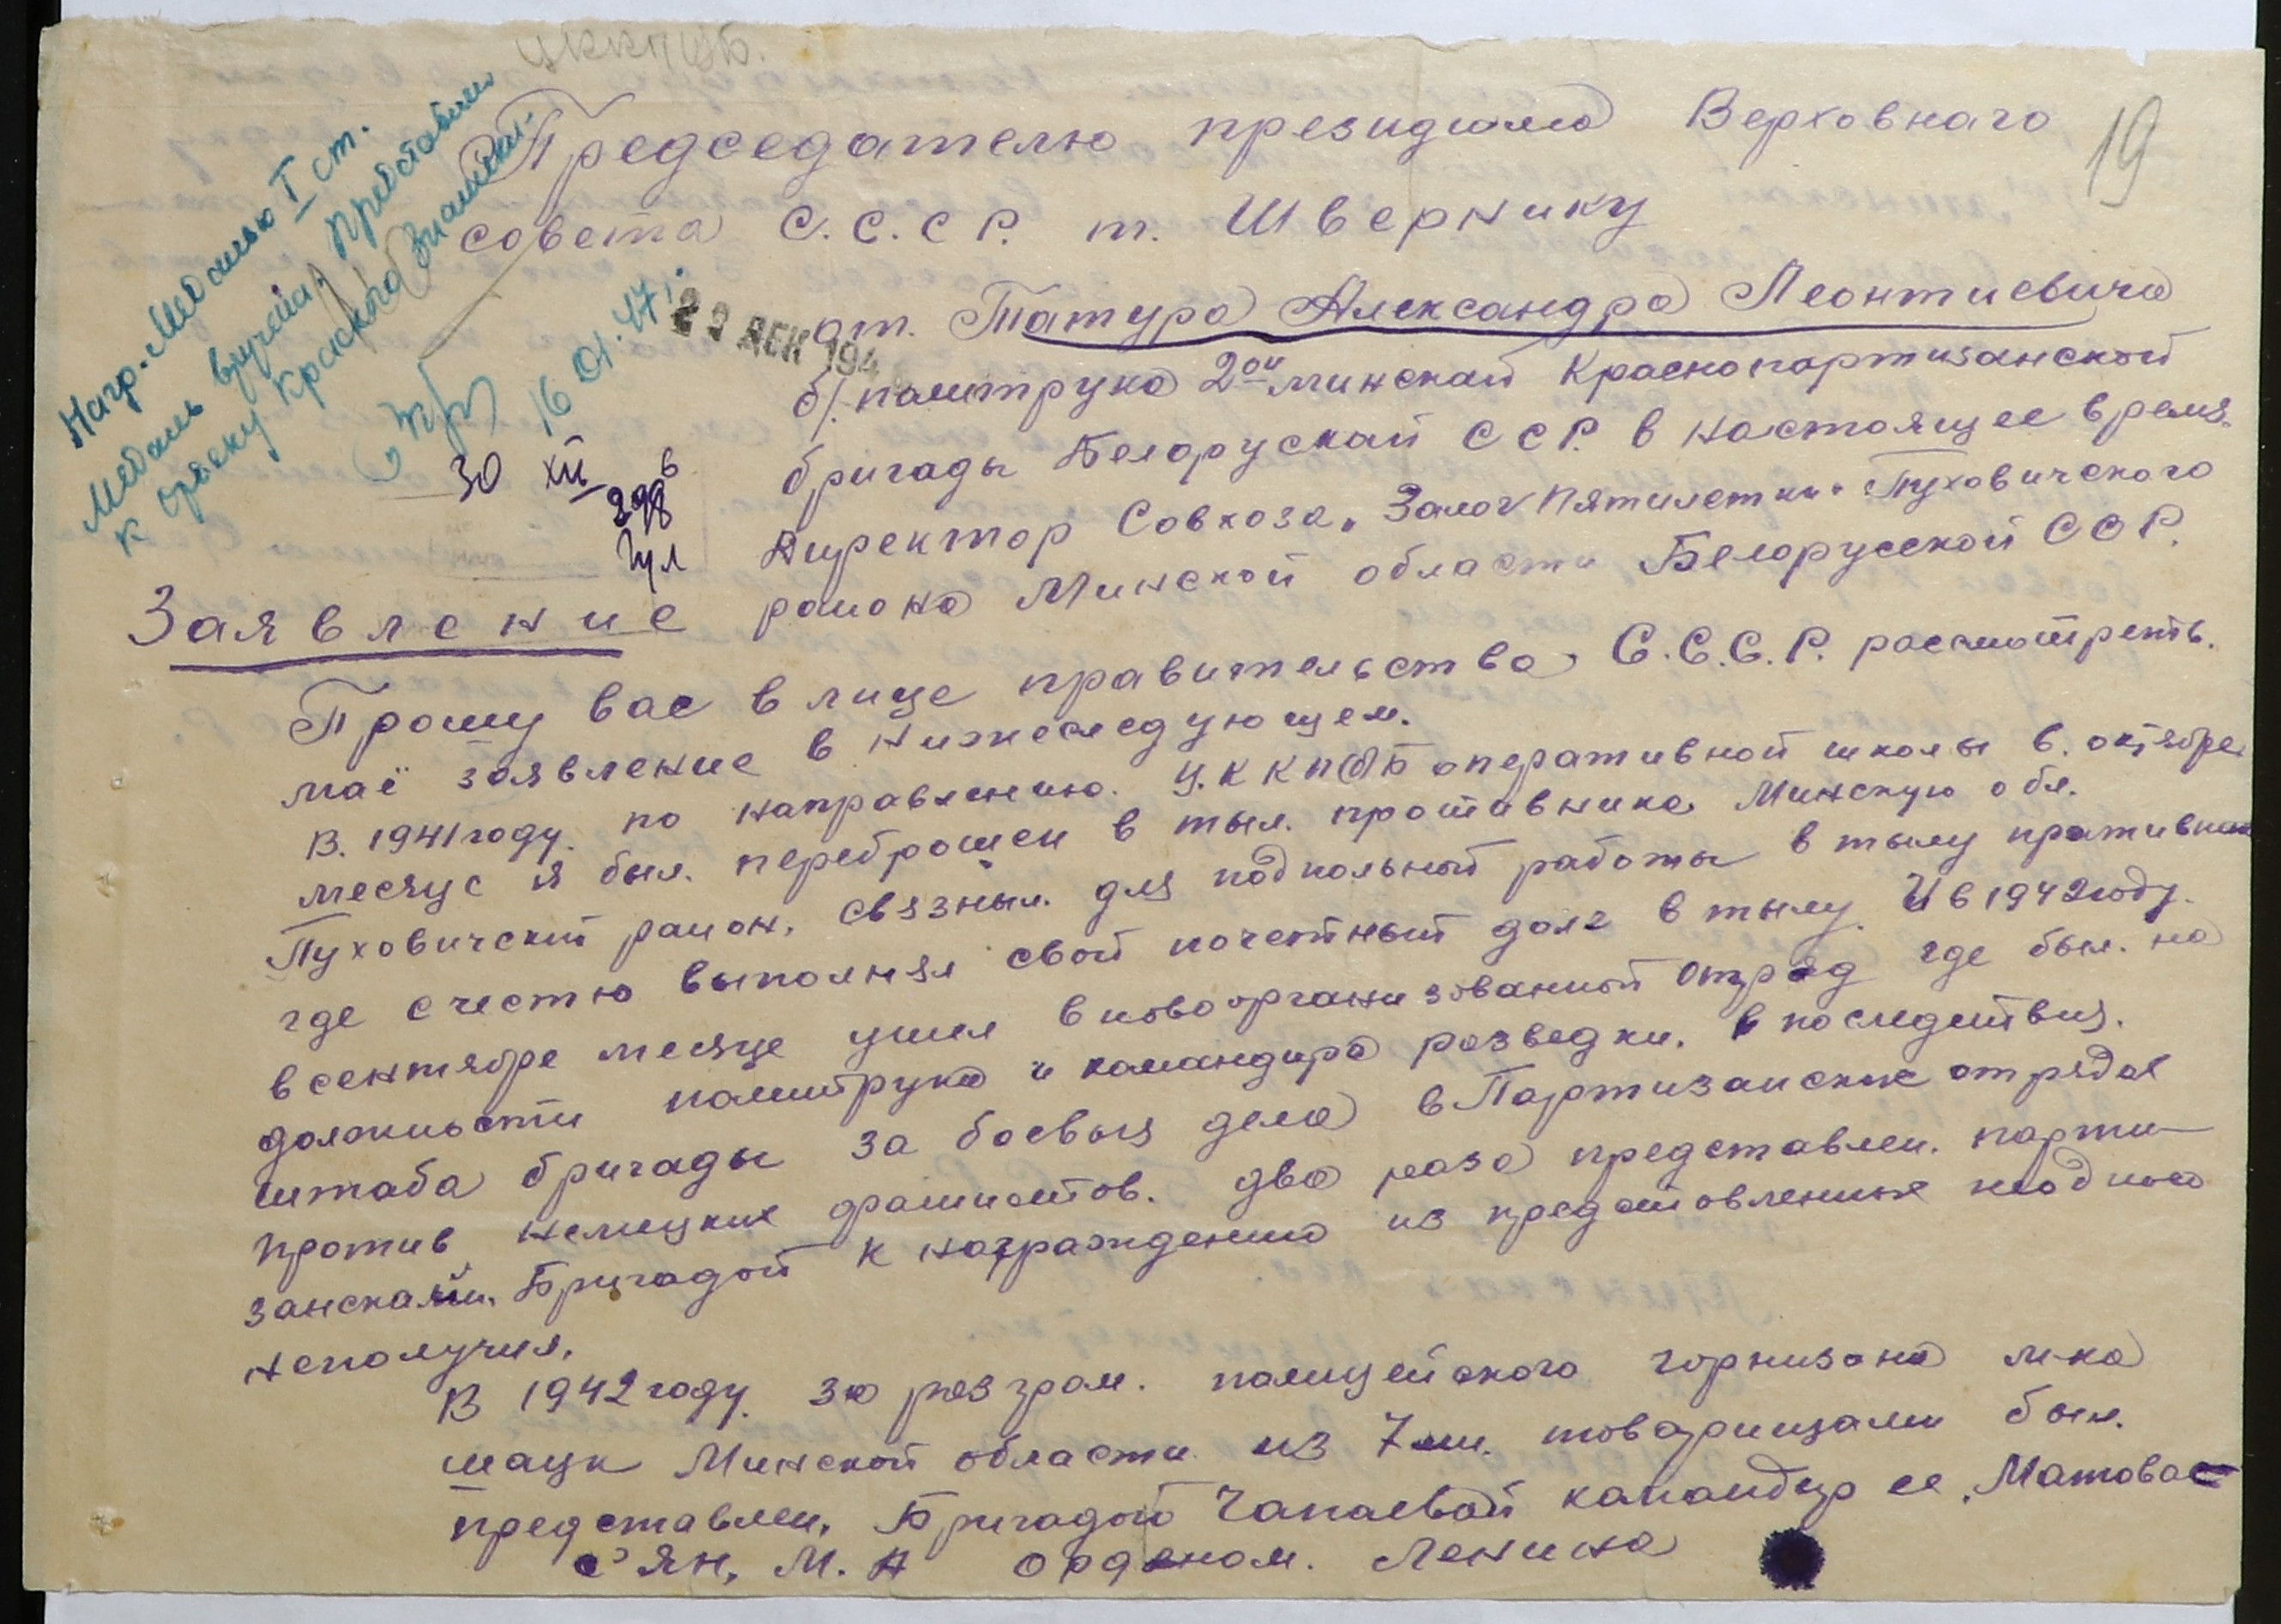 ЦККП(б)Б.
19
Нагр. Медалью I ст.
Медаль вручена. Представлен
к ордену Красного Знамени.
16 01.47 г.
23 ДЕК 194
30 XII
6
298
Председателю президиума Верховнаго
совета С.С.С Р. т. Швернику
от. Татура Александра Леонтиевича
б/. политрука 2ой минскай Краснопартизанской
бригады Белорускай ССР. в настоящее время.
Директор Совхоза „Залог Пятилетки" Пуховичского
района Минской области Белорусской ССР.
Заявление
Прошу вас в лице правительства С.С.С.Р. рассмотреть.
маё заявление в нижеследующем.
В. 1941 году. по направлению. Ц.К КП(б)Б оперативной школы в. октябре
месяце я был. переброшен в тыл. противника Минскую обл.
Пуховичский район. связным. для подпольной работы в тылу противника
где счестью выполнял свой почетный долг в тылу. И в 1942 году.
в сентябре месяце ушел в новоорганизованной отряд где был. на
должности политрука и командира разведки. в последствия.
штаба бригады за боевыя дела в Партизанских отрядах
против немецких фашистов. два раза представлен. парти-
занскай. Бригадой к награждению из представленных неодного
неполучил.
В 1942 году. за разгром. полицейского горнизона м-ка
шацк Минской области из 7ми. товарищами был.
представлен. Бригадой Чапаевай командир ее. Матевос
с'ян. М. А орденом. Ленина